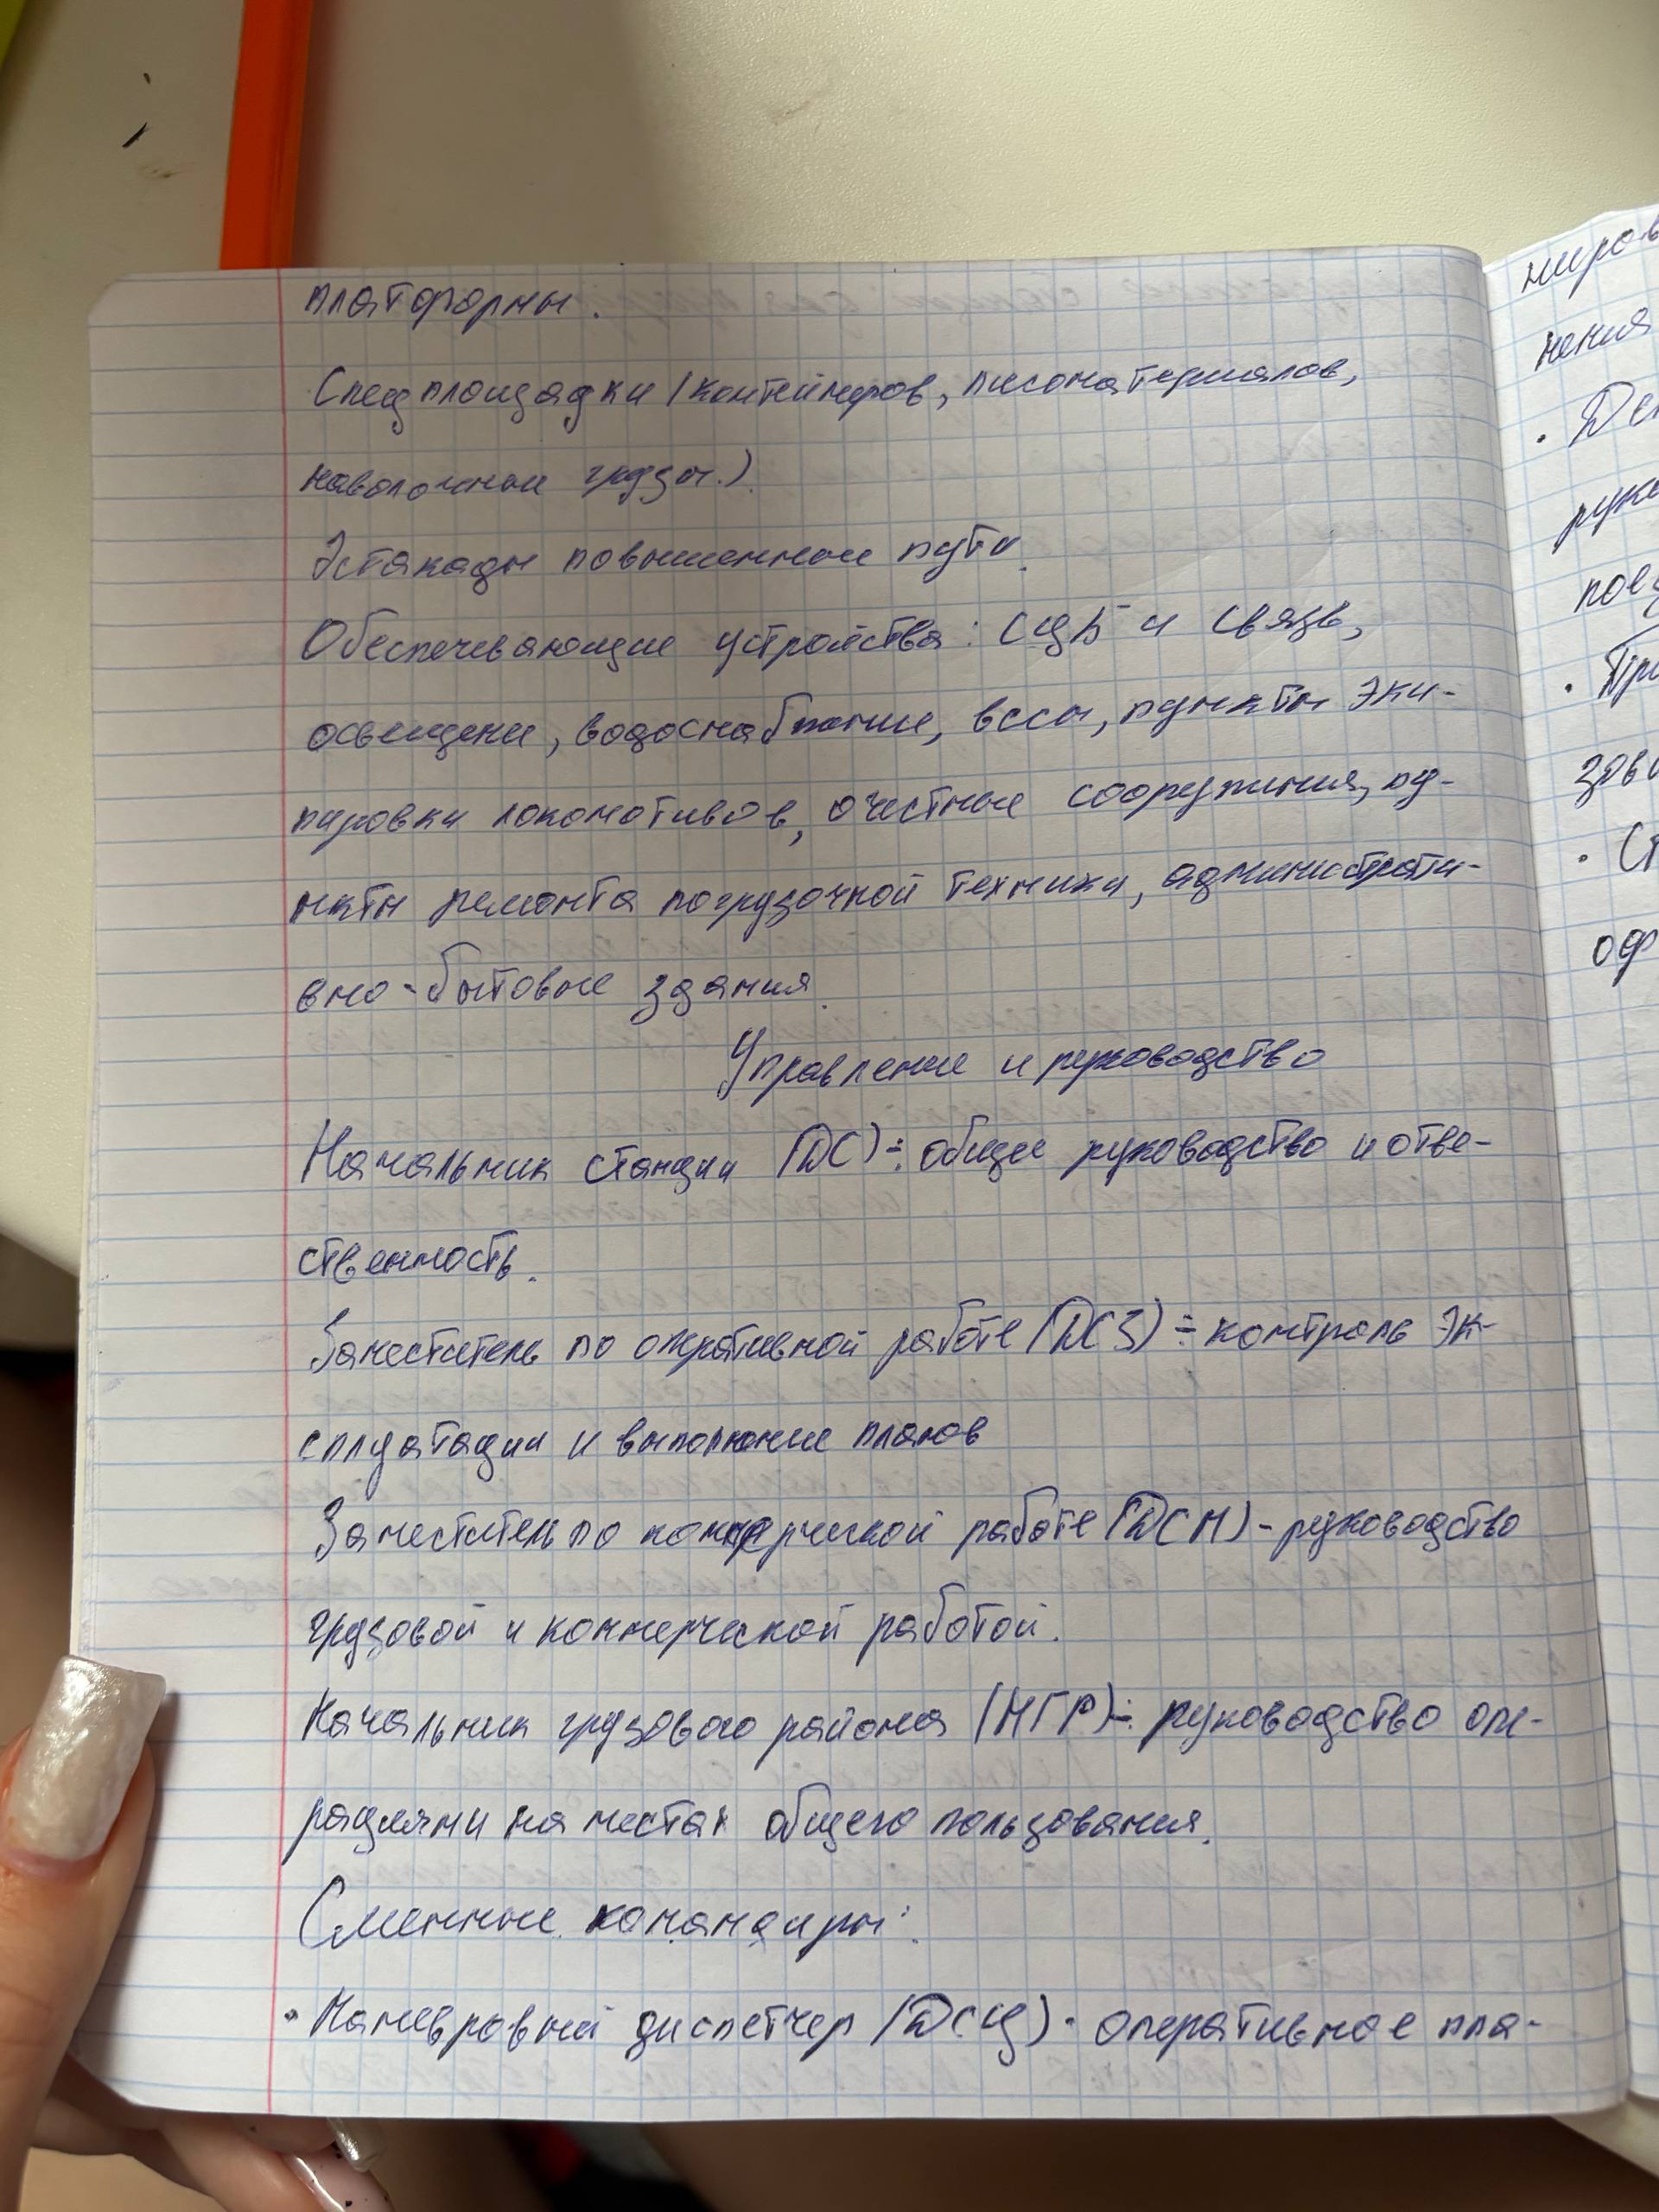 платформы.
Спецплощадки (контейнеров, писоматериалов,
наволочные грузы.)
Эстакады повышенные пути.
Обеспечивающие устройства: СЦБ и связь,
освещение, водоснабжение, весы, пункты эки-
пировки локомотивов, очестные сооружения, пу-
нкты ремонта погрузочной техники, администрати-
вно-бытовые здания.
Управление и руководство
Начальник станции (ДС)÷ общее руководство и отве-
ственность.
Заместитель по оперативной работе (ДСЗ) ÷ контроль эк-
сплуатации и выполнение планов
Заместитель по коммерческой работе (ДСМ) - руководство
грузовой и коммерческой работой.
Начальник грузового района (НГР) ÷ руководство опе-
рациями на местах общего пользования.
Сменные командиры:
• Маневровый диспетчер (ДСЦ) - оперативное пла-
миров
нения
• 
руко
поез
• При
зова
• Ст
оф